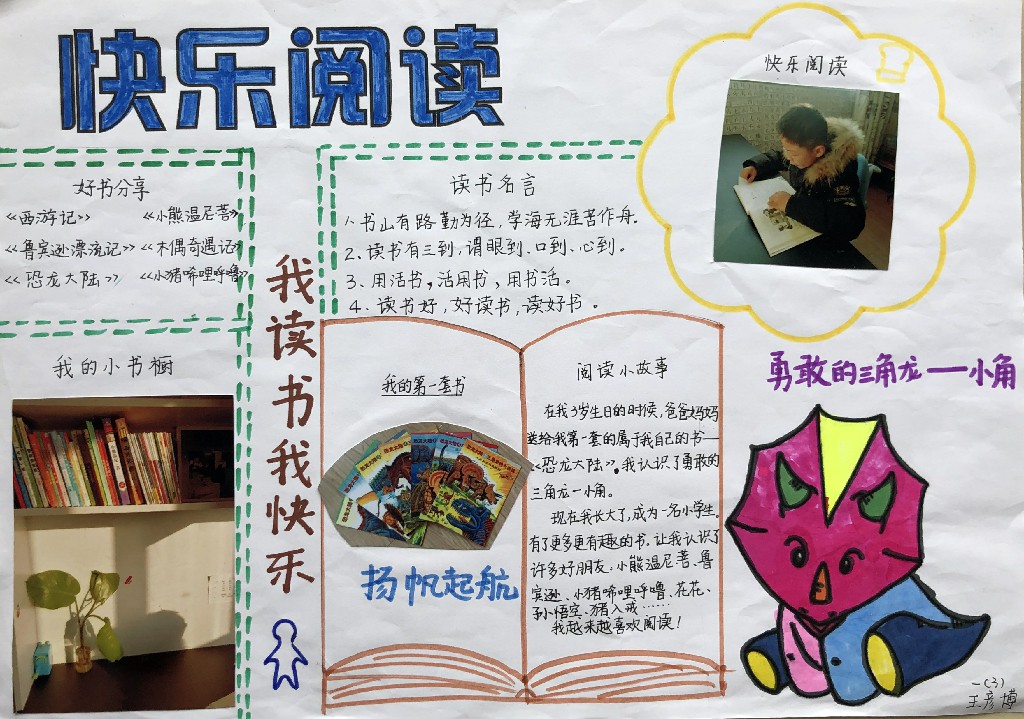 快乐阅读
快乐阅读
好书分享
《西游记》 《小熊温尼菩》
《鲁宾逊漂流记》 《木偶奇遇记》
《恐龙大陆》 《小猪唏哩呼噜》
读书名言
1、书山有路勤为径，学海无涯苦作舟。
2、读书有三到，谓眼到、口到、心到。
3、用活书，活用书，用书活。
4、读书好，好读书，读好书。
我读书我快乐
我的小书橱
我的第一套书
扬帆起航
阅读小故事
在我3岁生日的时候，爸爸妈妈
送给我第一套的属于我自己的书——
《恐龙大陆》。我认识了勇敢的
三角龙—小角。
现在我长大了，成为一名小学生。
有了更多更有趣的书。让我认识了
许多好朋友：小熊温尼菩、鲁
宾逊、小猪唏哩呼噜、花花、
孙悟空、猪八戒……
我越来越喜欢阅读！
勇敢的三角龙——小角
一(3)
王彦博